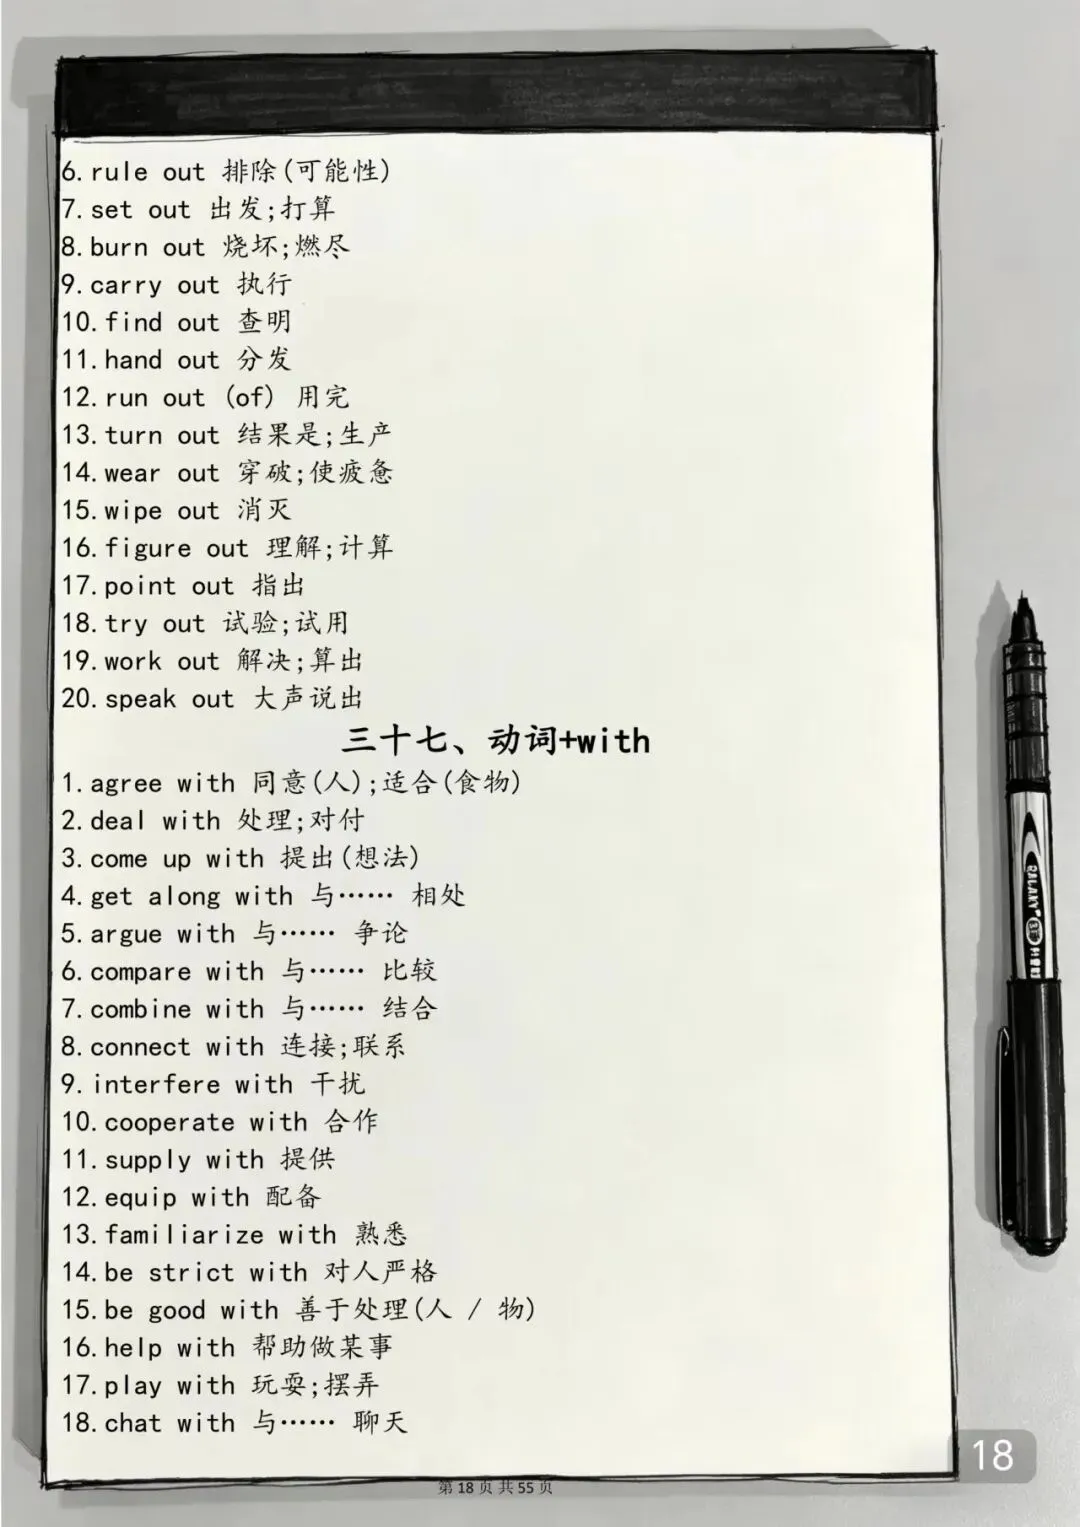 6.rule out 排除(可能性)
7.set out 出发;打算
8.burn out 烧坏;燃尽
9.carry out 执行
10.find out 查明
11.hand out 分发
12.run out (of) 用完
13.turn out 结果是;生产
14.wear out 穿破;使疲惫
15.wipe out 消灭
16.figure out 理解;计算
17.point out 指出
18.try out 试验;试用
19.work out 解决;算出
20.speak out 大声说出
三十七、动词+with
1.agree with 同意(人);适合(食物)
2.deal with 处理;对付
3.come up with 提出(想法)
4.get along with 与…… 相处
5.argue with 与…… 争论
6.compare with 与…… 比较
7.combine with 与…… 结合
8.connect with 连接;联系
9.interfere with 干扰
10.cooperate with 合作
11.supply with 提供
12.equip with 配备
13.familiarize with 熟悉
14.be strict with 对人严格
15.be good with 善于处理(人 / 物)
16.help with 帮助做某事
17.play with 玩耍;摆弄
18.chat with 与…… 聊天
第 18 页 共 55 页
18